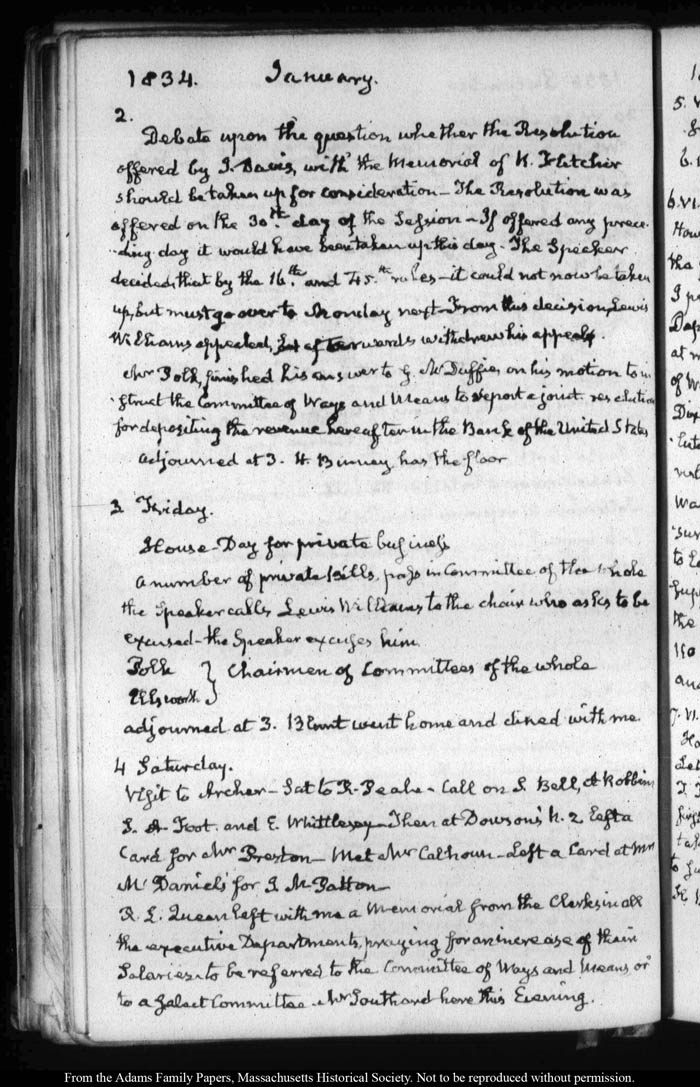 1834. January.
2.
Debate upon the question whether the Resolution
offered by J. Davis, with the Memorial of K. Fletcher
should be taken up for consideration – The Resolution was
offered on the 30th. day of the Session – If offered any prece-
-ding day it would have been taken up this day – The Speaker
decided, that by the 16th. and 45th. rules – it could not now be taken
up, but must go over to Monday next – From this decision, Lewis
Williams appealed, but afterwards withdrew his appeal.
Mr Polk, finished his answer to G. McDuffie, on his motion to in
struct the Committee of Ways and Means to report a joint resolution
for depositing the revenue hereafter in the Bank of the United States
adjourned at 3. H. Binney has the floor
3 Friday.
House – Day for private business
a number of private bills, pass in Committee of the whole
the Speaker calls Lewis Williams to the chair who asks to be
excused – the Speaker excuses him
Polk } Chairmen of Committees of the whole
Ellsworth }
adjourned at 3. Blunt went home and dined with me.
4 Saturday.
Visit to Archer – Sat to R. Peale – Call on S. Bell, A Robbins
S. A. Foot. and E. Whittlesey – Then at Dowson's N. 2 Left a
Card for Mr Preston – Met Mr Calhoun – Left a Card at Mrs
McDaniel's for J. M. Patton –
left with me a Memorial from the Clerks in all
the executive Departments, praying for an increase of their
Salaries – to be referred to the Committee of Ways and Means or
to a Select Committee. Mr Southard here this Evening.
5. V
6.
6. VI.
How
tha
I p
Dap
at m
of W
Dix
to
the
Ho
7. VI.
Ho
From the Adams Family Papers, Massachusetts Historical Society. Not to be reproduced without permission.